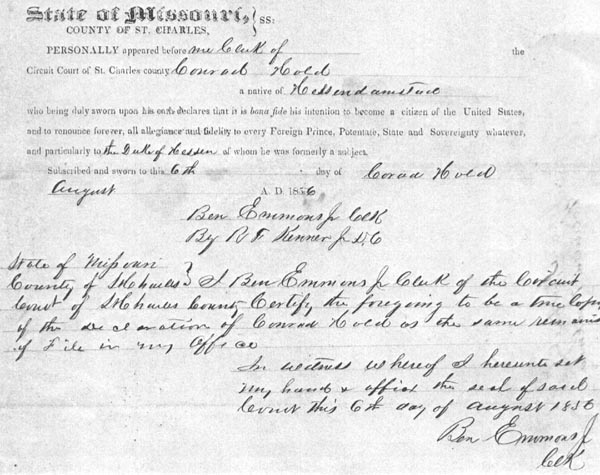 State of Missouri, } SS:
COUNTY OF ST. CHARLES,
PERSONALLY appeared before me Clerk of the
Circuit Court of St. Charles county Conrad Hold
a native of Hessendarmstad
who being duly sworn upon his oath declares that it is bona fide his intention to become a citizen of the United States,
and to renounce forever, all allegiance and fidelity to every Foreign Prince, Potentate, State and Sovereignty whatever,
and particularly to the Duke of Hessen of whom he was formerly a subject.
Subscribed and sworn to this 6th day of Conrad Hold
August A. D. 1856
Ben Emmons Jr Clk
By R F Kenner Jr D.C
State of Missouri }
County of St Charles } I Ben Emmons Jr Clerk of the Circuit
Court of St Charles County Certify the foregoing to be a true Copy
of the declaration of Conrad Hold as the same remains
of File in my Office
In witness whereof I hereunto set
my hand & affix the seal of said
Court this 6th day of August 1856
Ben Emmons Jr
Clk